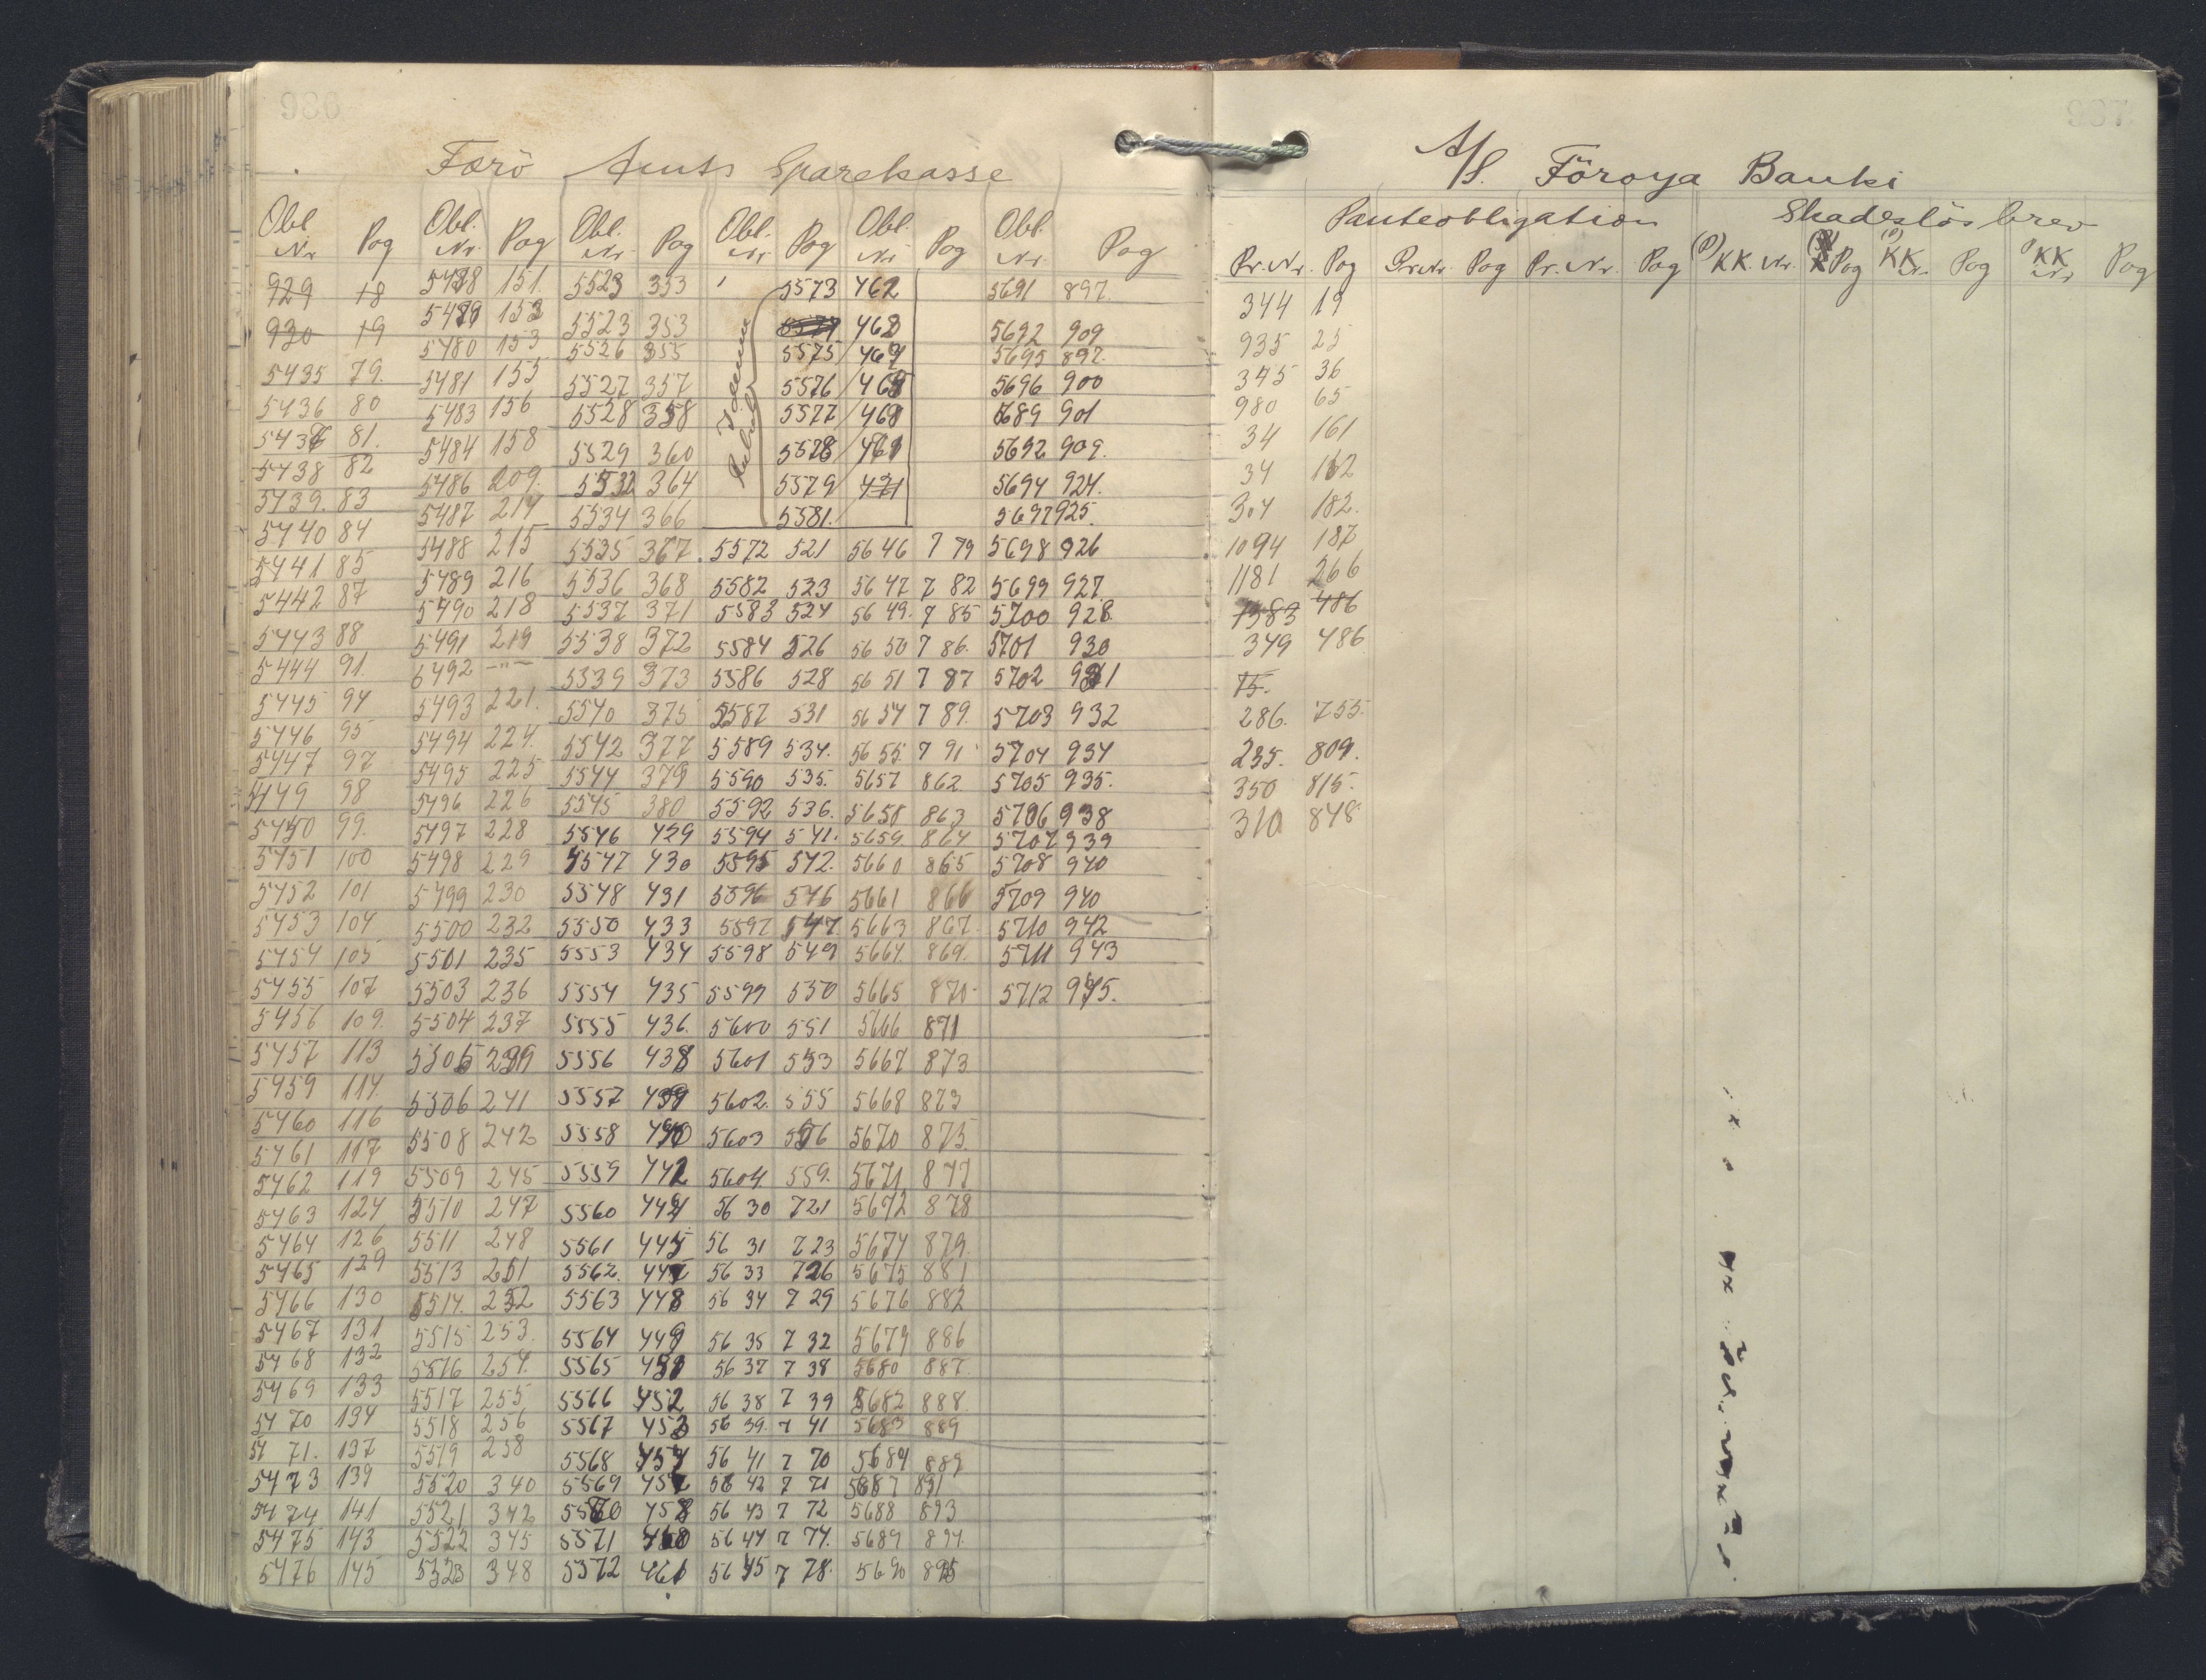 936
Færö Amts Sparekasse
Obl. Nr. Pag Obl. Nr. Pag Obl. Nr. Pag Obl. Nr. Pag Obl. Nr. Pag Obl. Nr. Pag
929 18
930 19
5435 79.
5436 80
81.
5438 82
5439. 83
5440 84
5441 85
5442 87
5443 88
5444 91.
5445 94
5446 95
5447 97
5449 98
5450 99.
5451 100
5452 101
5453 104
5454 105
5455 107
5456 109.
5457 113
5459 114.
5460 116
5461 117
5462 119
5463 124
5464 126
5465 129
5466 130
5467 131
5468 132
5469 133
5470 134
5471. 137
5473 139
5474 141
5475 143
5476 145
151.
5480 153
5481 155
5483 156
5484 158
5486 209.
5487 214
5488 215
5489 216
5490 218
5491 219
6492 —"—
5493 221.
5494 224.
5495 225
5496 226
5497 228
5498 229
5499 230
5500 232
5501 235
5503 236
5504 237
5505
5506 241
5508 242
5509 245
5510 247
5511 248
5513 251
5514. 252
5515 253.
5516 254.
5517 255
5518 256
5519 258
5520 340
5521 342
5522 345
5323 348
5523 353
5523 353
5526 355
5527 357
5528 358
5529 360
5532 364
5534 366
5535 367.
5536 368
5537 371
5538 372
5539 373
5540 375
5542 377
5544 379
5545 380
5546 429
5547 430
5548 431
5550 433
5553 434
5554 435
5555 436.
5556 438
5557 439
5558 440
5559 442
5560 444
5561 445
5562. 447
5563 448
5564 449
5565 450
5566 452
5567 453
5568 454
5569 457
5570 458
5571 460
5572 461
5573 462
5574 468
5575 469
5576 468
5577 468
5578 461
5579 471
5581.
5572 521
5582 523
5583 524
5584 526
5586 528
5587 531
5589 534.
5590 535.
5592 536.
5594 541.
5595 542.
5596 546
5597 547
5598 549
5599 550
5600 551
5601 553
5602. 555
5603 556
5604. 559.
5630 721
5631 723
5633 726
5634 729
5635 732
5637 738
5638 739
5639. 741
5641 770
5642 771
5643 772
5644 774.
5645 778.
5646 779
5647 782
5649. 785
5650 786.
5651 787
5654 789.
5655. 791
5657 862
5658 863
5659. 864
5660 865
5661 866
5663 867.
5664. 869.
5665 870-
5666 871
5667 873
5668 873
5670 875
5671 877
5672 878
5674 879.
5675 881
5676 882
5679 886
5680 887.
5682 888.
5683 889
5684 889
5687 891
5688 893
5689 894.
5690 895
5691 897.
5692 909
5695 897.
5696 900
5689 901
5692 909.
5694 924.
5697 925.
5698 926
5699 927.
5700 928.
5701 930
5702 931
5703 932
5704 934
5705 935.
5706 938
5707 939
5708 940
5709 940
5710 942
5711 943
5712 945.
A/S. Föroya Banki
Panteobligation Skadeslösbrev
Pr. Nr. Pag Pr. Nr. Pag Pr. Nr. Pag (P) KK. Nr. Pag (P) KK Nr. Pag P KK Nr. Pag
344 19
935 25
345 36
980 65
34 161
34 162
304 182.
1094 187
1181 266
1383 486
349 486
15.
286. 755.
235. 809.
350 815.
310 848.